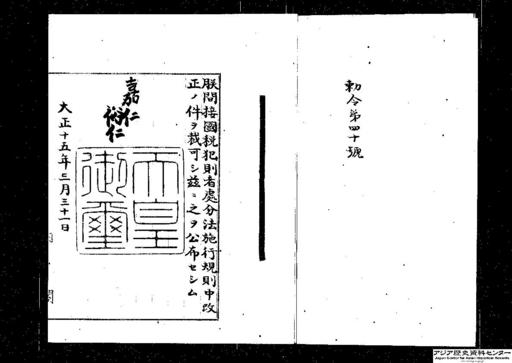 勅令第四十號
朕間接國税犯則者處分法施行規則中改
正ノ件ヲ裁可シ茲ニ之ヲ公布セシム
嘉仁
裕仁
天皇
御璽
大正十五年三月三十一日
アジア歴史資料センター
Japan Center for Asian Historical Records